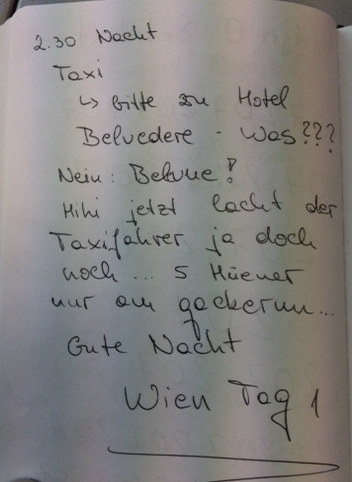 2.30 Nacht
Taxi
↳ bitte zu Hotel
Belvedere - Was???
Nein: Belvue!
Hihi jetzt lacht der
Taxifahrer ja doch
noch ... 5 Hüener
nur am gackernn...
Gute Nacht
Wien Tag 1